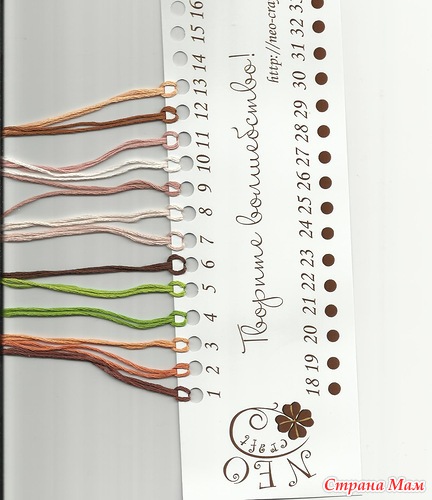 NEO
craft
1 2 3 4 5 6 7 8 9 10 11 12 13 14 15 16
Творите волшебство!
http://neo-cra
18 19 20 21 22 23 24 25 26 27 28 29 30 31 32 33
Страна Мам